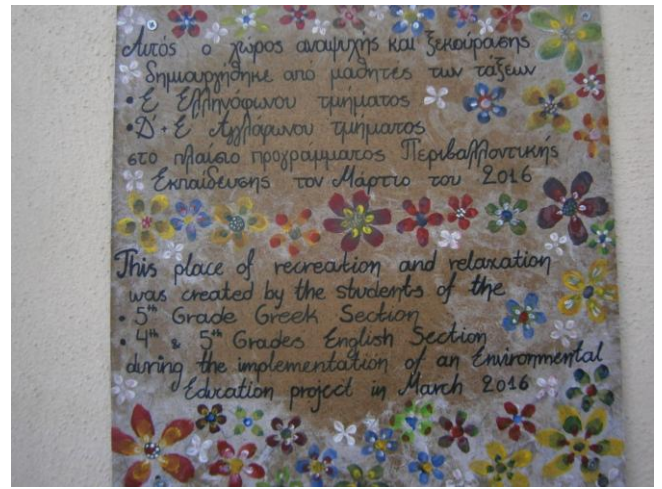 Αυτός ο χώρος αναψυχής και ξεκούρασης
δημιουργήθηκε από μαθητές των τάξεων
• Ε Ελληνόφωνου τμήματος
• Δ + Ε Αγγλόφωνου τμήματος
στο πλαίσιο προγράμματος Περιβαλλοντικής
Εκπαίδευσης τον Μάρτιο του 2016
This place of recreation and relaxation
was created by the students of the
• 5th Grade Greek Section
• 4th & 5th Grades English Section
during the implementation of an Environmental
Education project in March 2016